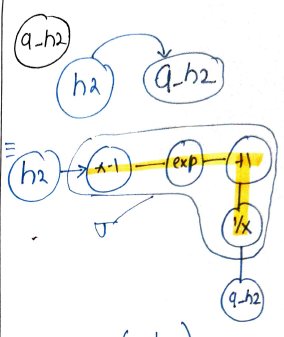 a_h2
h2 a_h2
=
h2 x-1 exp +1
σ
1/x
a_h2